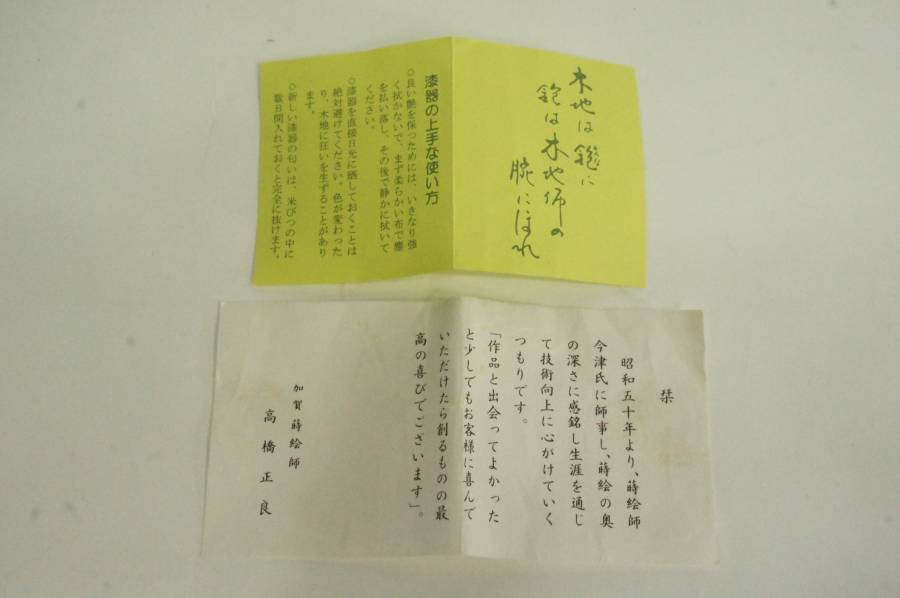 木地は鉋に
鉋は木地師の
腕にほれ
漆器の上手な使い方
○良い艶を保つためには、いきなり強
く拭かないで、まず柔らかい布で塵
を払い落し、その後で静かに拭いて
ください。
○漆器を直接日光に晒しておくことは
絶対避けてください。色が変わった
り、木地に狂いを生ずることがあり
ます。
○新しい漆器の匂いは、米びつの中に
数日間入れておくと完全に抜けます。
栞
昭和五十年より、蒔絵師
今津氏に師事し、蒔絵の奥
の深さに感銘し生涯を通じ
て技術向上に心がけていく
つもりです。
「作品と出会ってよかった
と少しでもお客様に喜んで
いただけたら創るものの最
高の喜びでございます」。
加賀蒔絵師
高橋正良